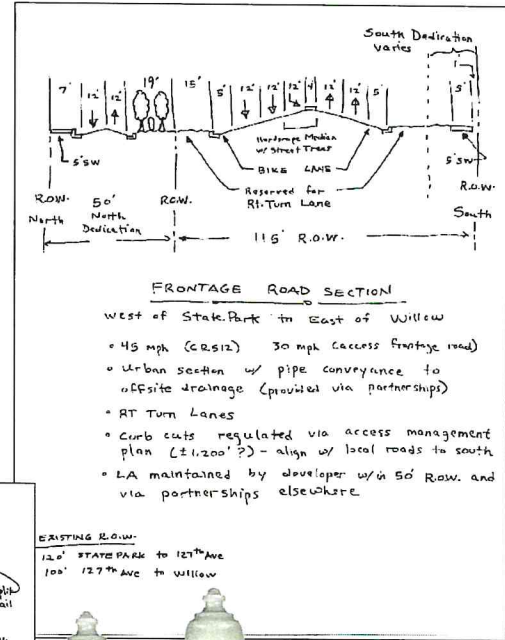 South Dedication
varies
7' 12' 12' 19' 15' 5' 12' 12' 12' 4' 12' 12' 5' 5' 1
Hardscape Median
w/ Street Trees
5' SW
BIKE LANE
5' SW
Reserved for
Rt. Turn Lane
R.O.W.
North
50'
North
Dedication
R.O.W.
115' R.O.W.
R.O.W.
South
FRONTAGE ROAD SECTION
West of State Park to East of Willow
• 45 mph (CR512) 30 mph (access frontage road)
• Urban section w/ pipe conveyance to
offsite drainage (provided via partnerships)
• RT Turn Lanes
• Curb cuts regulated via access management
plan (±1,200'?) - align w/ local roads to south
• LA maintained by developer w/in 50' R.O.W. and
via partnerships elsewhere
EXISTING R.O.W.
120' STATE PARK to 127th Ave
100' 127th Ave to Willow